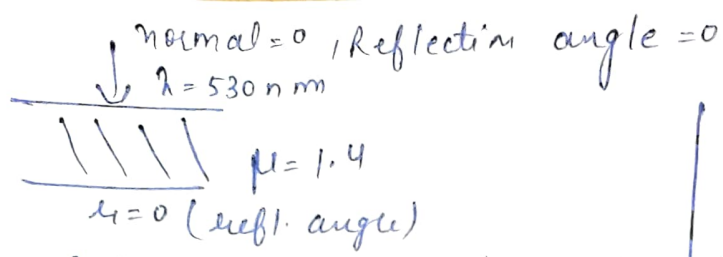 normal = 0, Reflection angle = 0
λ = 530 nm
μ = 1.4
r = 0 (refl. angle)